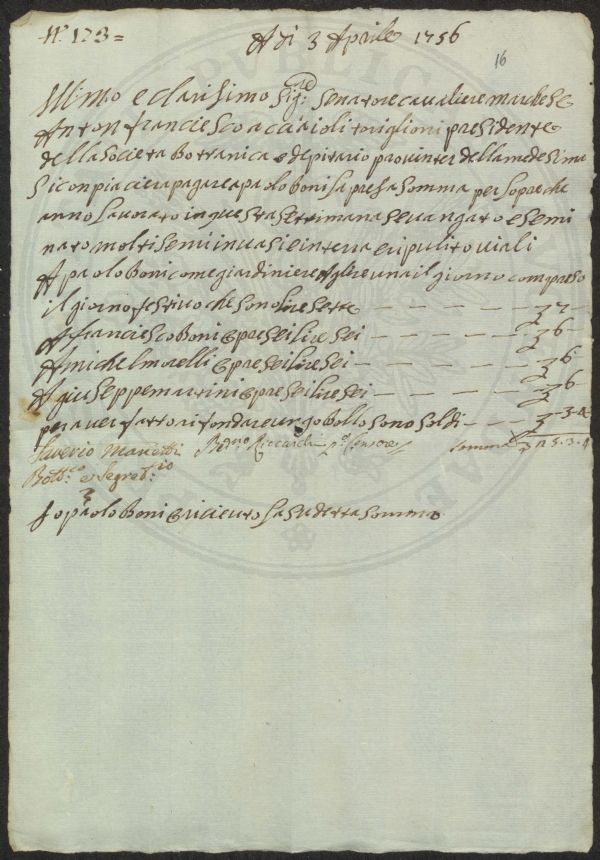 N.º 123=
A di 3 Aprile 1756
16
Illmo e clarisimo Sig:re Senatore cavaliere marchese
Anton franciesco acciaioli toriglioni presidente
della Societa Bottanica e depitario pro inter della medesima
Si conpiaciera pagare a paolo boni la presa Somma per lopre che
anno lavorato in questa Settimana e vangato e semi
nato molti Semi in vasi e in terra e ripulito viali
A paolo boni come giardiniere a lire una il giorno compreso
il giorno festivo che sono lire Sette — — — — £ 7 -
A franciesco boni opre sei lire sei — — — — £ 6 -
A michel morelli opre sei lire sei — — — — £ 6
A giuseppe martini opre sei lire sei — — — £ 6
per aver fatto rifondare un go bollo sono Soldi — — £ -3-4
Saverio Manetti
Bott.co e Segret.rio
Somma £ 25.3.4
Io paolo boni o riceuto la sudetta Somma
PUBLIC